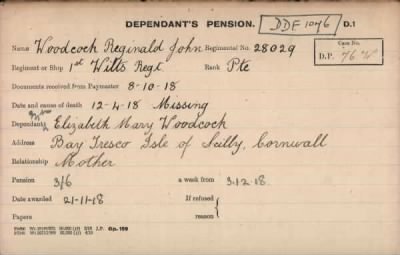 DEPENDANT'S PENSION. DDF 1076 D.1
Name Woodcock Reginald John Regimental No. 28029
Case No.
D.P. 76 W
Regiment or Ship 1st Wilts Regt Rank Pte
Documents received from Paymaster 8-10-18
Date and cause of death 12-4-18 Missing
Dependant Elizabeth Mary Woodcock
Address Bay Tresco Isle of Scilly, Cornwall
Relationship Mother
Pension 3/6 a week from 3.12.18.
Date awarded 21-11-18 If refused
Papers reason
Gp. 199